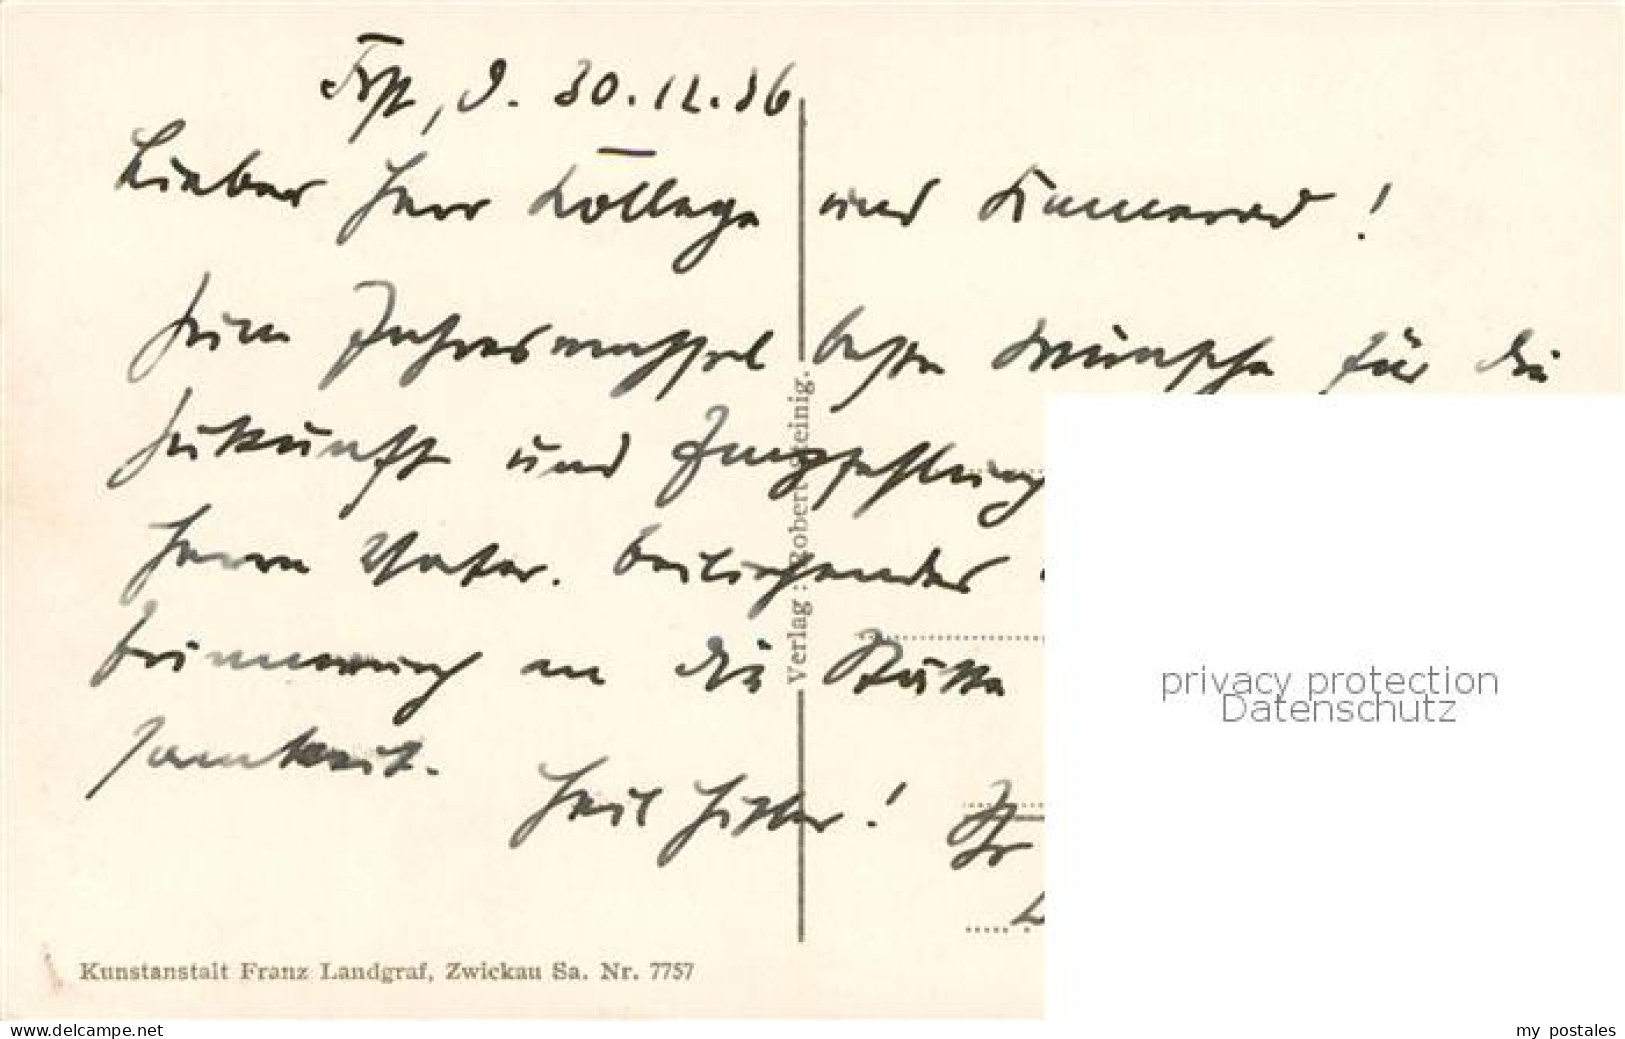 d. 30.12.36
Lieber Herr Kollege und Kamerad!
Zum Jahreswechsel beste Wünsche für die
Zukunft und Empfehlung
Herrn Vater. Beiliegendes
Erinnerung an die Stätte
samkeit.
Heil Hitler!
Verlag: Robert
einig.
Kunstanstalt Franz Landgraf, Zwickau Sa. Nr. 7757
privacy protection
Datenschutz
www.delcampe.net
my postales